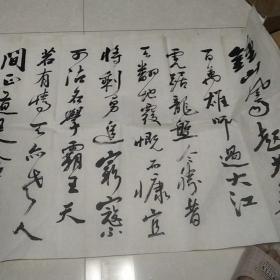 鐘山風雨起蒼
百萬雄师過大江
虎踞龍盤今勝昔
天翻地覆慨而慷宜
將剩勇追窮寇不
可沽名學霸王天
若有情天亦老人
間正道是